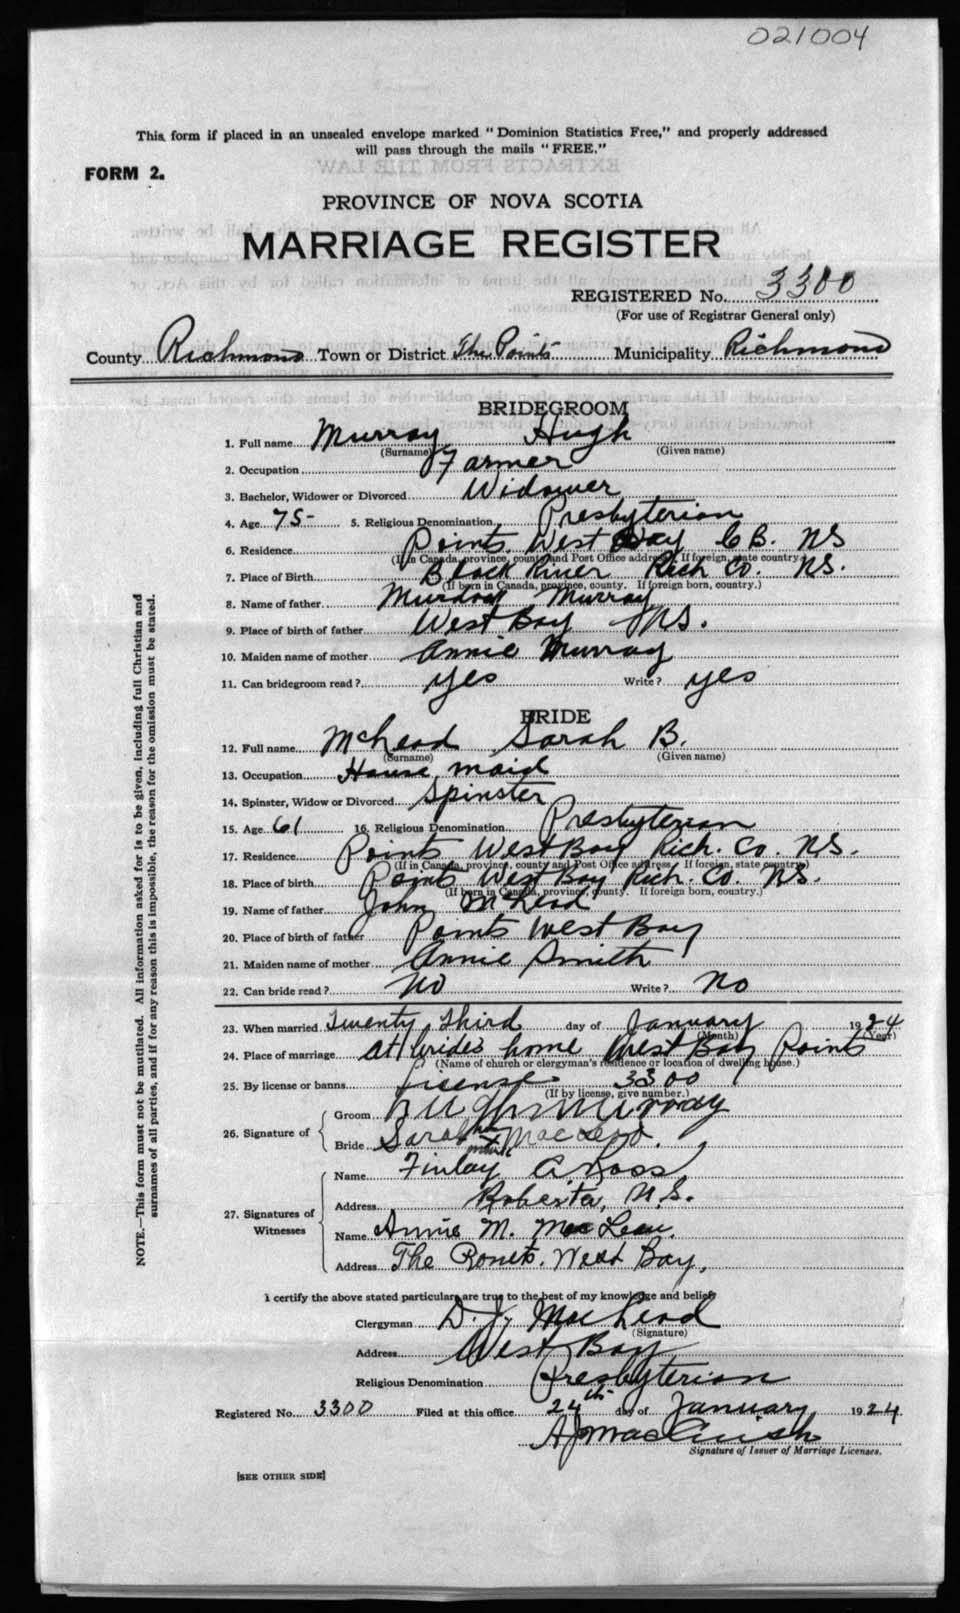 021004
This form if placed in an unsealed envelope marked "Dominion Statistics Free," and properly addressed
will pass through the mails "FREE."
FORM 2.
PROVINCE OF NOVA SCOTIA
MARRIAGE REGISTER
REGISTERED No. 3300
(For use of Registrar General only)
County Richmond Town or District The Points Municipality Richmond
BRIDEGROOM
1. Full name Murray Hugh
(Surname) (Given name)
2. Occupation Farmer
3. Bachelor, Widower or Divorced Widower
4. Age 75- 5. Religious Denomination Presbyterian
6. Residence Points West Bay C B. NS
(If in Canada, province, county and Post Office address. If foreign, state country.)
7. Place of Birth Black River Rich Co. NS.
(If born in Canada, province, county. If foreign born, country.)
8. Name of father Murdoch Murray
9. Place of birth of father West Bay NS.
10. Maiden name of mother Annie Murray
11. Can bridegroom read? yes Write? yes
BRIDE
12. Full name McLeod Sarah B.
(Surname) (Given name)
13. Occupation House maid
14. Spinster, Widow or Divorced Spinster
15. Age 61 16. Religious Denomination Presbyterian
17. Residence Points West Bay Rich. Co. NS.
(If in Canada, province, county and Post Office address. If foreign, state country)
18. Place of birth Points West Bay Rich. Co. NS.
(If born in Canada, province, county. If foreign born, country.)
19. Name of father John McLeod
20. Place of birth of father Points West Bay
21. Maiden name of mother Annie Smith
22. Can bride read? No Write? No
23. When married Twenty Third day of January 1924
(Month) (Year)
24. Place of marriage At brides home West Bay Points
(Name of church or clergyman's residence or location of dwelling house.)
25. By license or banns License 3300
(If by license, give number.)
26. Signature of
Groom Murray
Bride Sarah her x mark MacLeod.
27. Signatures of Witnesses
Name Finlay A Ross
Address Roberta, N.S.
Name Annie M. MacLean.
Address The Points. West Bay,
I certify the above stated particulars are true to the best of my knowledge and belief
Clergyman D. J. MacLeod
(Signature)
Address West Bay
Religious Denomination Presbyterian
Registered No. 3300 Filed at this office 24th day of January 1924
A J MacCuish
Signature of Issuer of Marriage Licenses.
[SEE OTHER SIDE]
NOTE.—This form must not be mutilated. All information asked for is to be given, including full Christian and
surnames of all parties, and if for any reason this is impossible, the reason for the omission must be stated.